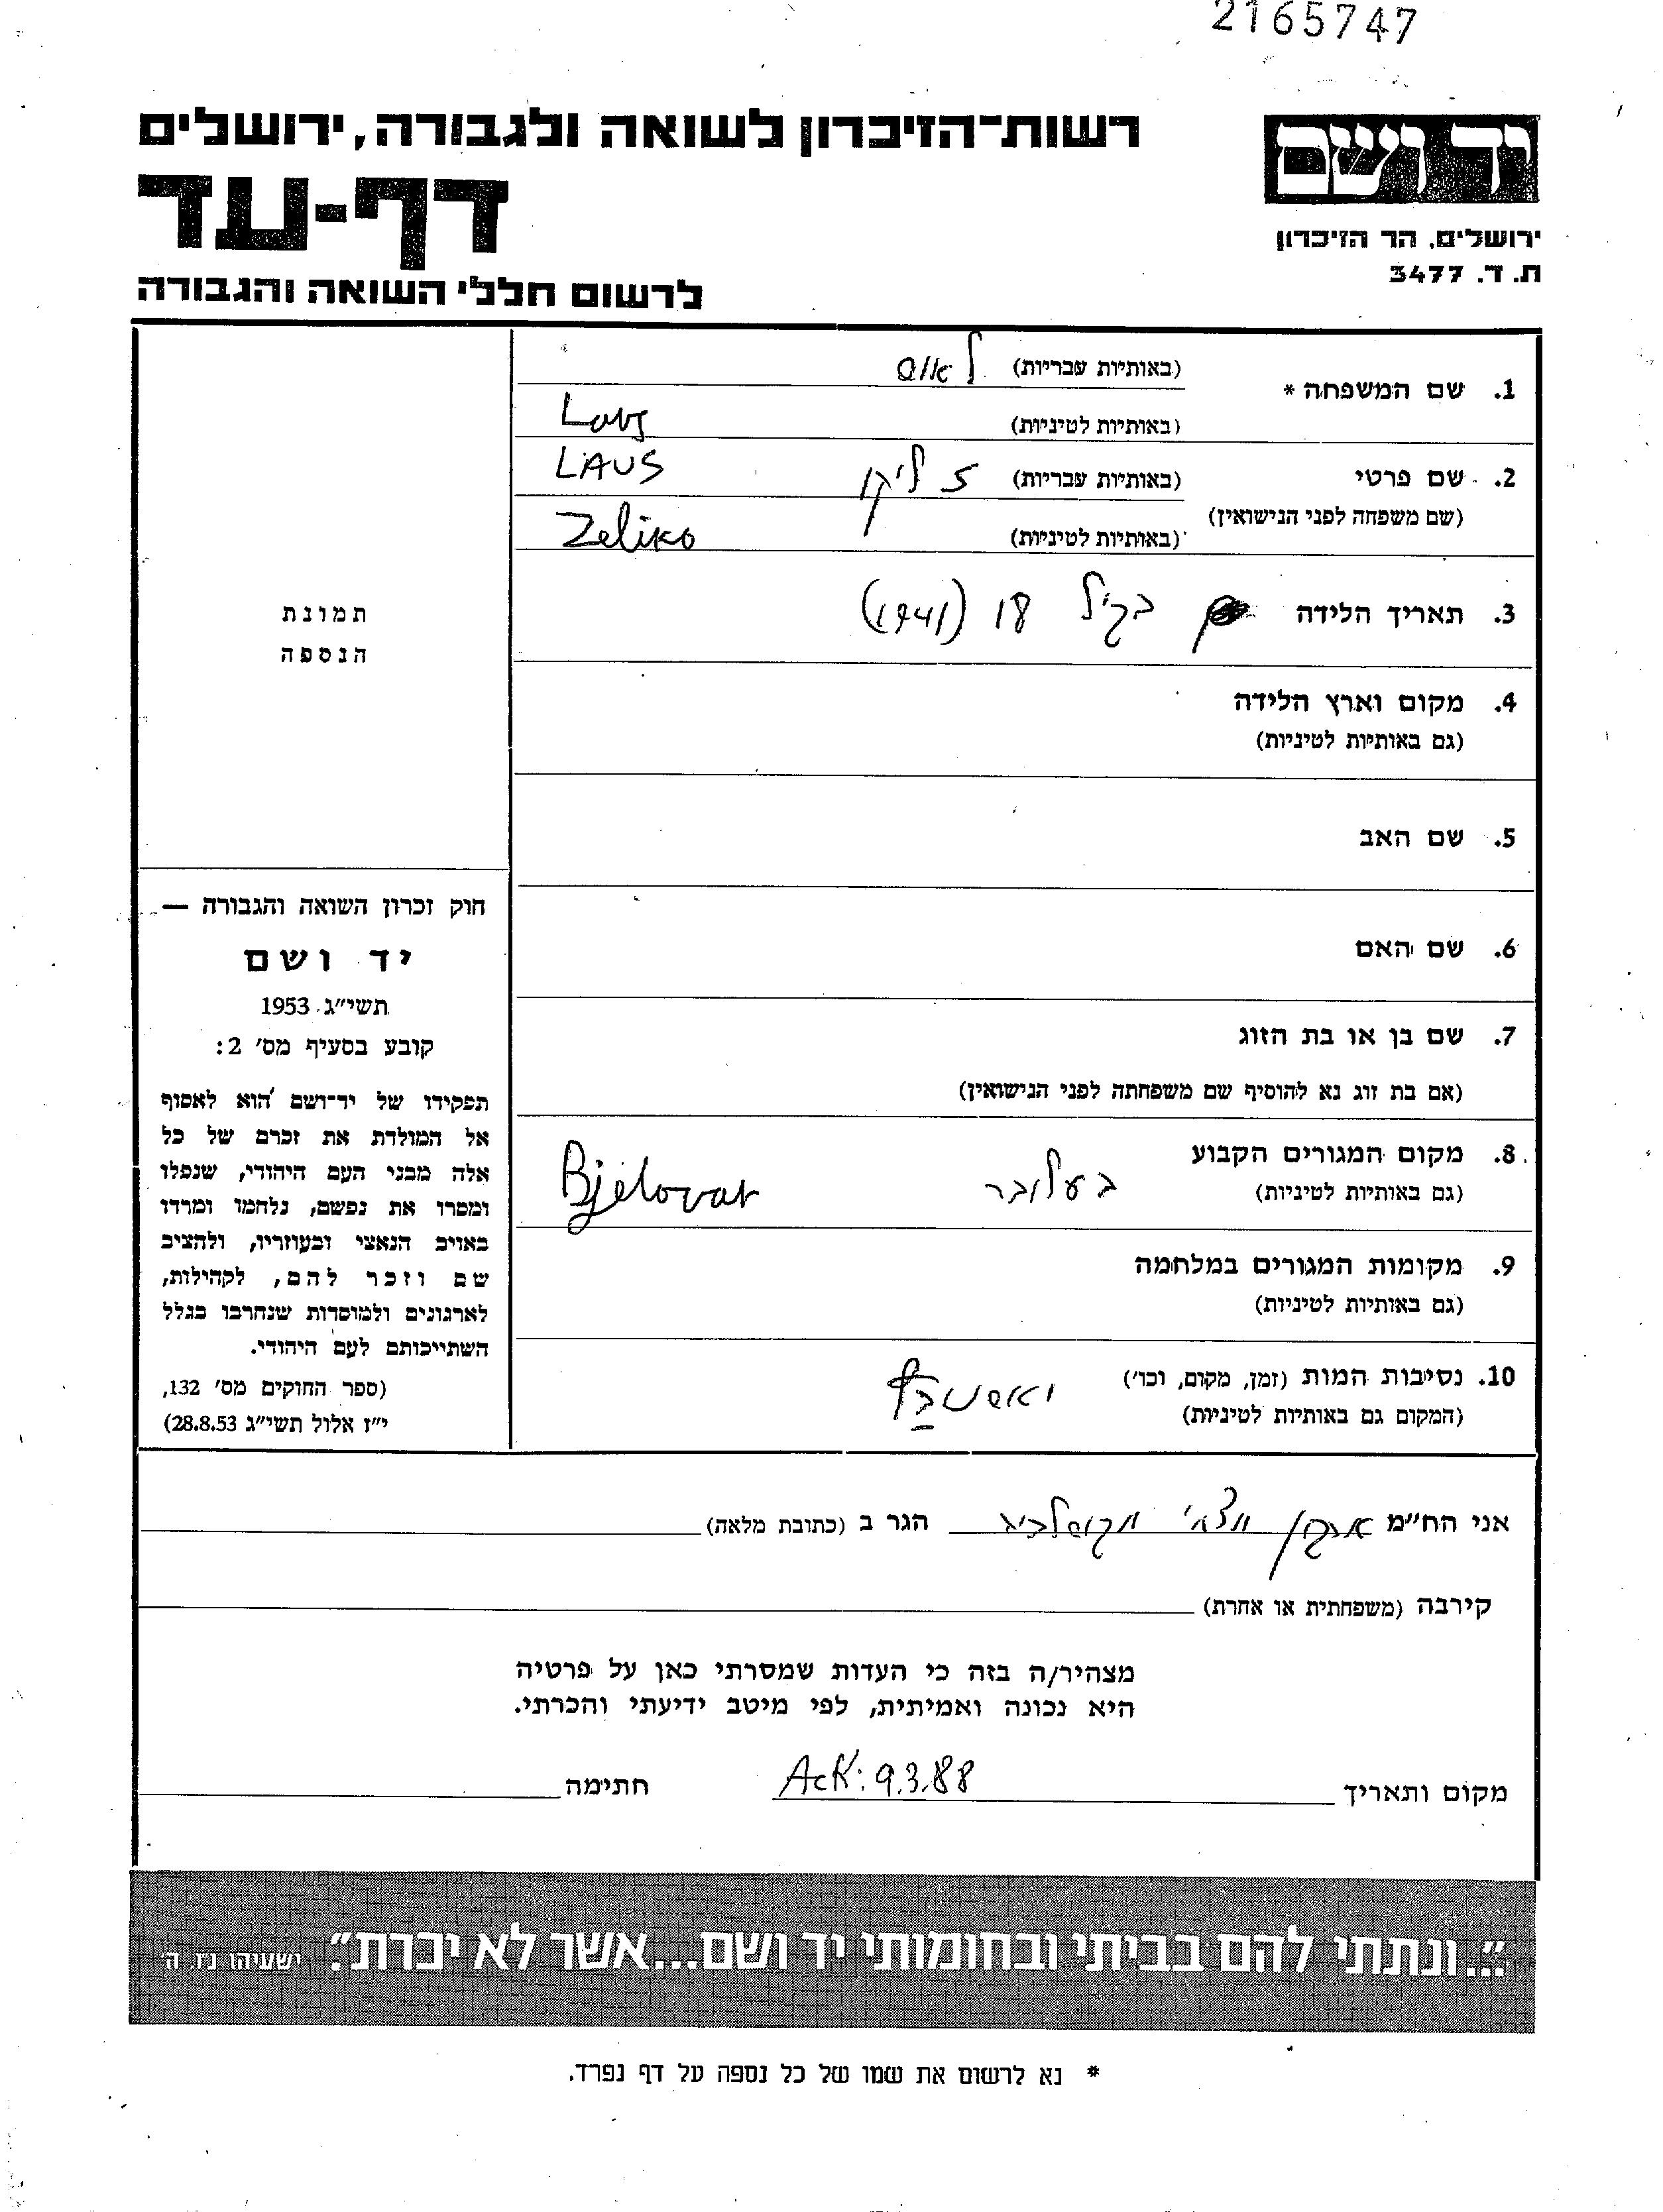 2165747
יד ושם
רשות־הזיכרון לשואה ולגבורה, ירושלים
דף-עד
ירושלים, הר הזיכרון
ת. ד. 3477
לרשום חללי השואה והגבורה
1. שם המשפחה *
(באותיות עבריות) לאוס
(באותיות לטיניות) Laus
LAUS
2. שם פרטי
(שם משפחה לפני הנישואין)
(באותיות עבריות)
(באותיות לטיניות) Zeliko
3. תאריך הלידה בגיל 18 (1941)
4. מקום וארץ הלידה
(גם באותיות לטיניות)
5. שם האב
6. שם האם
7. שם בן או בת הזוג
(אם בת זוג נא להוסיף שם משפחתה לפני הנישואין)
8. מקום המגורים הקבוע
(גם באותיות לטיניות)
בעלובר Bjelovar
9. מקומות המגורים במלחמה
(גם באותיות לטיניות)
10. נסיבות המות (זמן, מקום, וכו')
(המקום גם באותיות לטיניות)
תמונת
הנספה
חוק זכרון השואה והגבורה —
יד ושם
תשי"ג 1953
קובע בסעיף מס' 2:
תפקידו של יד־ושם הוא לאסוף
אל המולדת את זכרם של כל
אלה מבני העם היהודי, שנפלו
ומסרו את נפשם, נלחמו ומרדו
באויב הנאצי ובעוזריו, ולהציב
שם וזכר להם, לקהילות,
לארגונים ולמוסדות שנחרבו בגלל
השתייכותם לעם היהודי.
(ספר החוקים מס' 132,
י"ז אלול תשי"ג 28.8.53)
אני הח"מ הגר ב (כתובת מלאה)
קירבה (משפחתית או אחרת)
מצהיר/ה בזה כי העדות שמסרתי כאן על פרטיה
היא נכונה ואמיתית, לפי מיטב ידיעתי והכרתי.
מקום ותאריך Ack: 9.3.88 חתימה
"...ונתתי להם בביתי ובחומותי יד ושם...אשר לא יכרת". ישעיהו נ"ו ה'
* נא לרשום את שמו של כל נספה על דף נפרד.